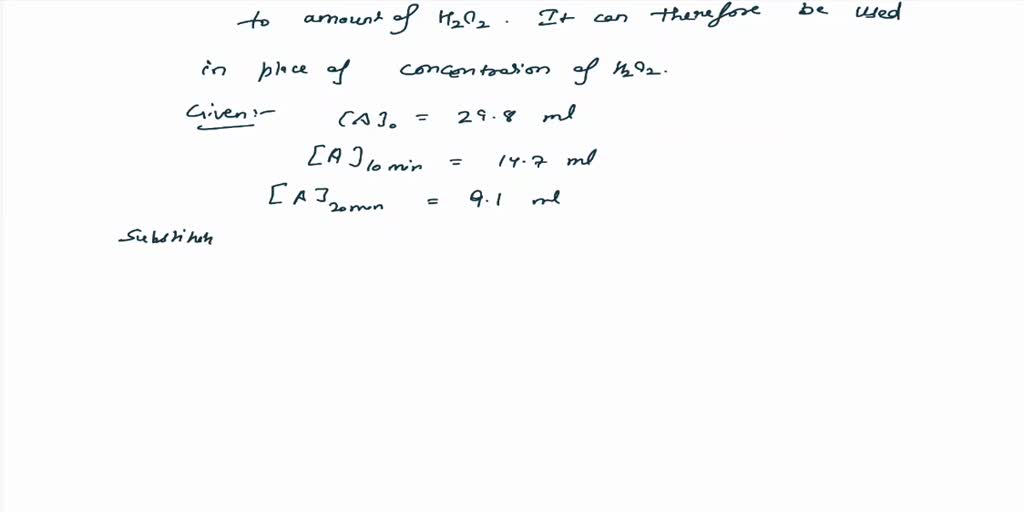 to amount of H₂O₂. It can therefore be used
in place of concentration of H₂O₂.
Given:- [A]₀ = 29.8 ml
[A]₁₀ ₘᵢₙ = 14.7 ml
[A]₂₀ ₘᵢₙ = 9.1 ml